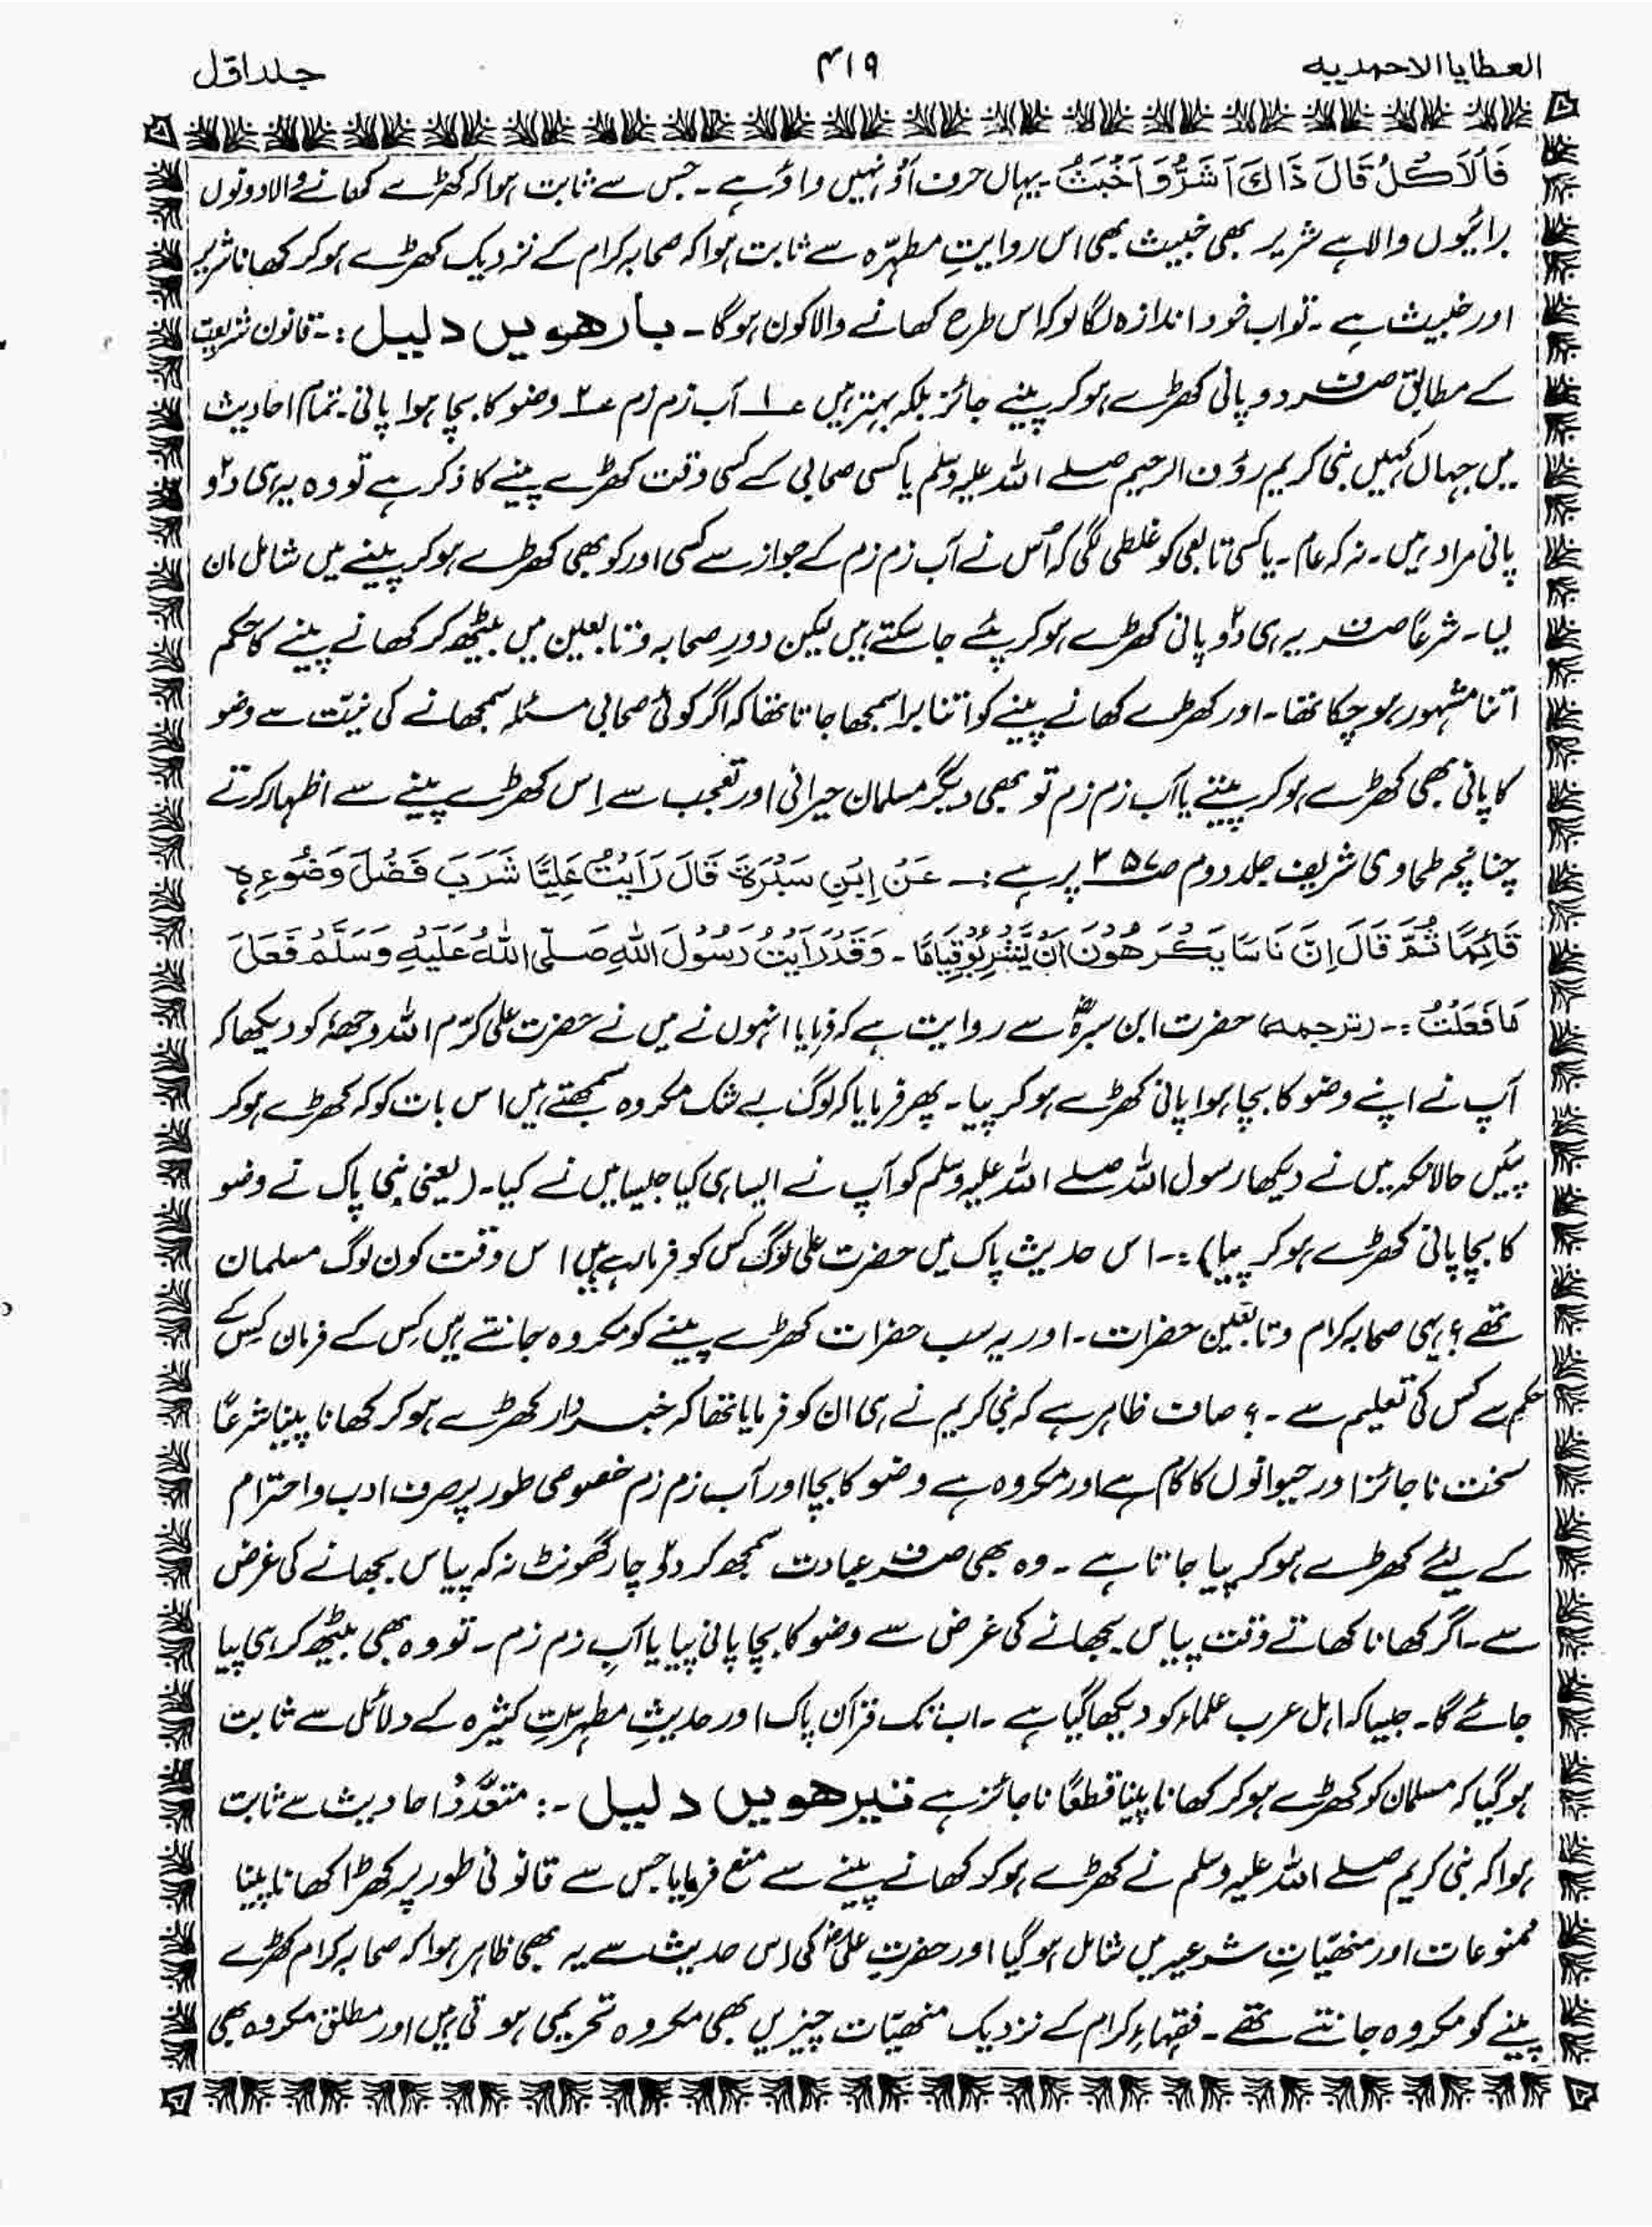 العطایا الاحمدیه
۴۱۹
جلد اوّل
فَالْاَکْلُ قَالَ ذَاكَ اَشَرُّ وَ اَخْبَثُ ۔ یہاں حرف اَوْ نہیں واؤ ہے ۔ جس سے ثابت ہوا کہ کھڑے کھانے والا دونوں
برائیوں والا ہے شریر بھی خبیث بھی اس روایتِ مطہّرہ سے ثابت ہوا کہ صحابہ کرام کے نزدیک کھڑے ہو کر کھانا شریر
اور خبیث ہے ۔ تو اب خود اندازہ لگا لو کہ اس طرح کھانے والا کون ہوگا ۔ بارھویں دلیل :۔ قانون شریعت
کے مطابق صرف دو پانی کھڑے ہو کر پینے جائز بلکہ بہتر ہیں ۱؎ آب زم زم ۲؎ وضو کا بچا ہوا پانی ۔ تمام احادیث
میں جہاں کہیں نبی کریم رؤف الرحیم صلے اللہ علیہ وسلم یا کسی صحابی کے کسی وقت کھڑے پینے کا ذکر ہے تو وہ یہ ہی دو
پانی مراد ہیں ۔ نہ کہ عام ۔ یا کسی تابعی کو غلطی لگی کہ اُس نے آب زم زم کے جواز سے کسی اور کو بھی کھڑے ہو کر پینے میں شامل مان
لیا ۔ شرعًا صرف یہ ہی دو پانی کھڑے ہو کر پئے جا سکتے ہیں لیکن دورِ صحابہ و تابعین میں بیٹھ کر کھانے پینے کا حکم
اتنا مشہور ہو چکا تھا ۔ اور کھڑے کھانے پینے کو اتنا برا سمجھا جاتا تھا کہ اگر کوئی صحابی مسئلہ سمجھانے کی نیّت سے وضو
کا پانی بھی کھڑے ہو کر پیتے یا آب زم زم تو بھی دیگر مسلمان حیرانی اور تعجب سے اِس کھڑے پینے سے اظہار کرتے
چنانچہ طحاوی شریف جلد دوم ص۳۵۷ پر ہے :۔ عَنْ اِبْنِ سَبْرَۃَ قَالَ رَاَیْتُ عَلِیًّا شَرَبَ فَضْلَ وَضُوْءِہٖ
قَائِمًا ثُمَّ قَالَ اِنَّ نَاسًا یَکْرَھُوْنَ اَنْ یَّشْرِبُوْ قِیَامًا ۔ وَقَدْ رَاَیْتُ رَسُوْلَ اللهِ صَلَّی اللهُ عَلَیْهِ وَسَلَّمَ فَعَلَ
مَا فَعَلْتُ :۔ (ترجمه) حضرت ابن سبرہؓ سے روایت ہے کہ فرمایا انہوں نے میں نے حضرت علی کرّم اللہ وجھہٗ کو دیکھا کہ
آپ نے اپنے وضو کا بچا ہوا پانی کھڑے ہو کر پیا ۔ پھر فرمایا کہ لوگ بے شک مکروہ سمجھتے ہیں اس بات کو کہ کھڑے ہو کر
پئیں حالانکہ میں نے دیکھا رسول اللہ صلے اللہ علیہ وسلم کو آپ نے ایسا ہی کیا جیسا میں نے کیا ۔ (یعنی نبی پاک نے وضو
کا بچا پانی کھڑے ہو کر پیا) :۔ اس حدیث پاک میں حضرت علی لوگ کس کو فرما رہے ہیں اس وقت کون لوگ مسلمان
تھے ؟ یہی صحابہ کرام و تابعین حضرات ۔ اور یہ سب حضرات کھڑے پینے کو مکروہ جانتے ہیں کِس کے فرمان کِس کے
حکم سے کس کی تعلیم سے ۔ ؟ صاف ظاہر ہے کہ نبی کریم نے ہی ان کو فرمایا تھا کہ خبردار کھڑے ہو کر کھانا پینا شرعًا
سخت ناجائز اور حیوانوں کا کام ہے اور مکروہ ہے وضو کا بچا اور آب زم زم خصوصی طور پر صرف ادب و احترام
کے لیئے کھڑے ہو کر پیا جاتا ہے ۔ وہ بھی صرف عبادت سمجھ کر دو چار گھونٹ نہ کہ پیاس بجھانے کی غرض
سے ۔ اگر کھانا کھاتے وقت پیاس بجھانے کی غرض سے وضو کا بچا پانی پیا یا آبِ زم زم ۔ تو وہ بھی بیٹھ کر ہی پیا
جائے گا ۔ جیسا کہ اہل عرب علماء کو دیکھا گیا ہے ۔ اب تک قرآن پاک اور حدیثِ مطہراتِ کثیرہ کے دلائل سے ثابت
ہو گیا کہ مسلمان کو کھڑے ہو کر کھانا پینا قطعًا ناجائز ہے تیرھویں دلیل :۔ متعَدّدْ احادیث سے ثابت
ہوا کہ نبی کریم صلے اللہ علیہ وسلم نے کھڑے ہو کو کھانے پینے سے منع فرمایا جس سے قانونی طور پر کھڑا کھانا پینا
ممنوعات اور منھیّاتِ شرعیہ میں شامل ہو گیا اور حضرتِ علیؓ کی اس حدیث سے یہ بھی ظاہر ہوا کہ صحابہ کرام کھڑے
پینے کو مکروہ جانتے تھے ۔ فقہاءِ کرام کے نزدیک منھیّات چیزیں بھی مکروہ تحریمی ہوتی ہیں اور مطلق مکروہ بھی